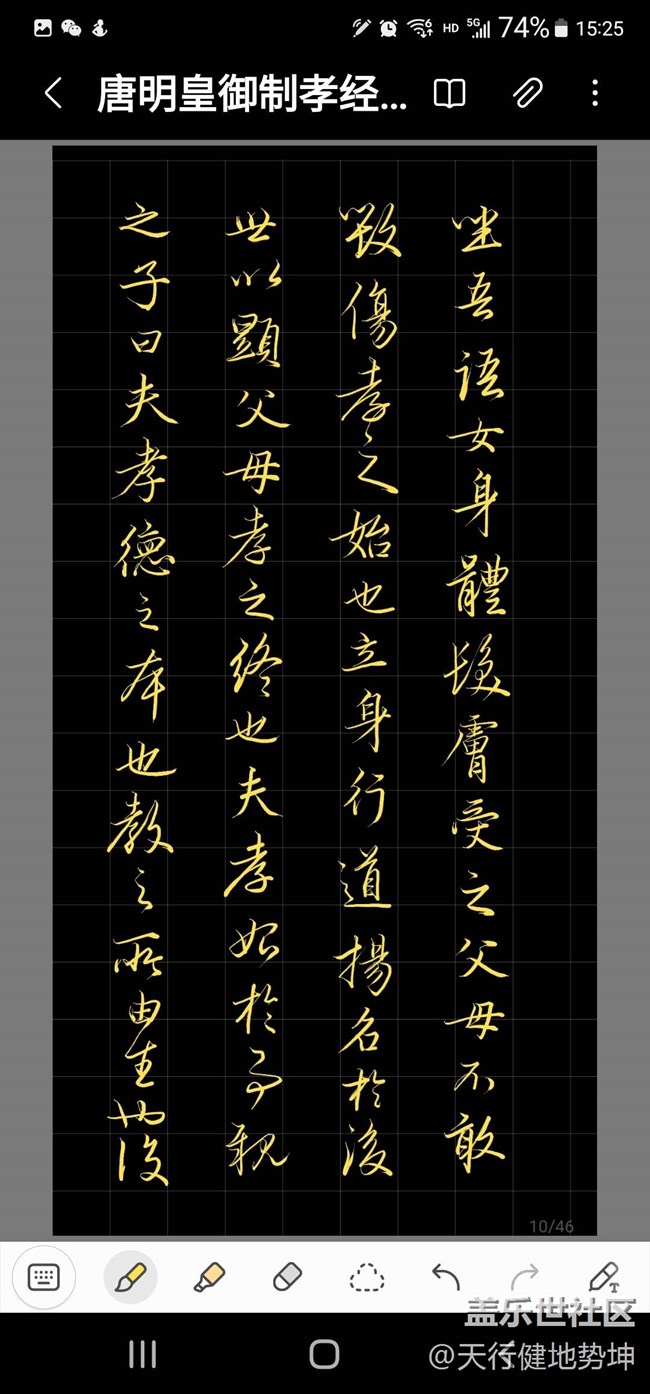 HD 5G 74% 15:25
唐明皇御制孝经...
坐吾語女身體髮膚受之父母不敢
毀傷孝之始也立身行道揚名於後
世以顯父母孝之終也夫孝始於事親
之子曰夫孝德之本也教之所由生也復
10/46
盖乐世社区
@天行健地势坤